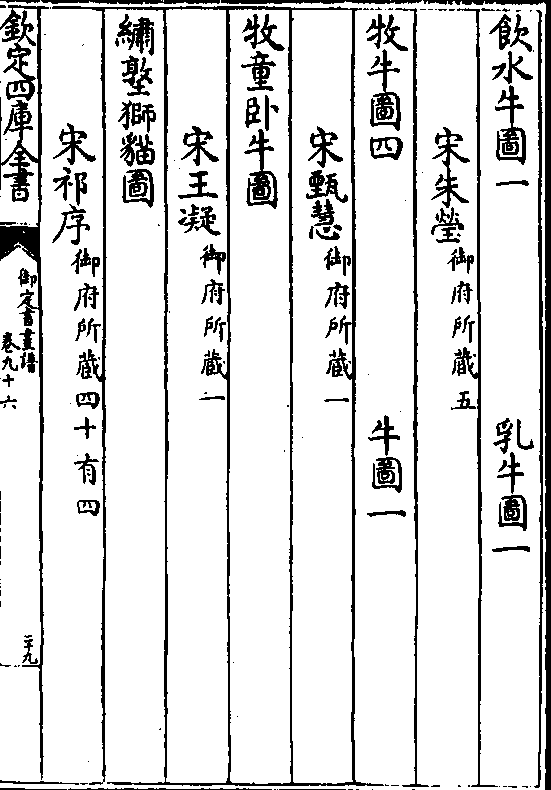 飲水牛圖一　乳牛圖一
宋朱瑩御府所藏五
牧牛圖四　牛圖一
宋甄慧御府所藏一
牧童卧牛圖
宋王凝御府所藏一
繡墪獅貓圖
宋祁序御府所藏四十有四
欽定四庫全書
御定書畫譜
卷九十六
二十九